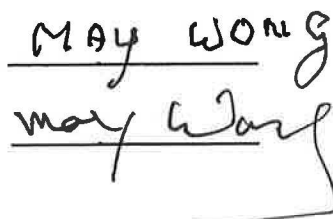 MAY WONG
May Wong